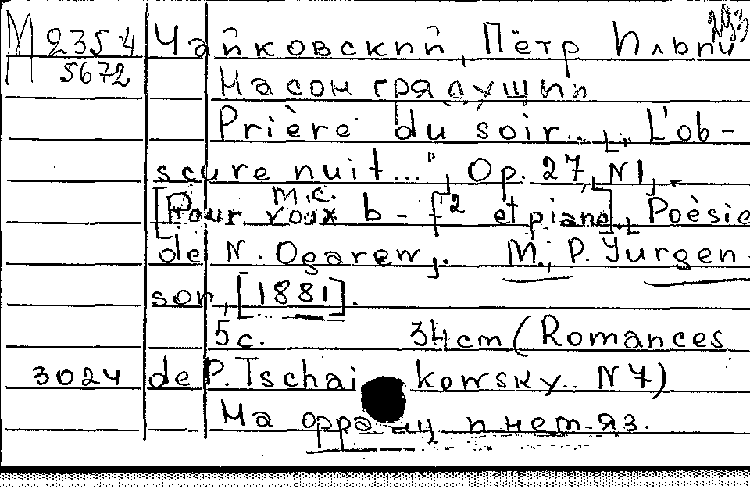 М 235-4 Чайковский, Пётр Ильич
П 5672 На сон грядущий
Prière du soir... „L'ob-
scure nuit...", Op. 27, N1,
[Pour voix м.с. b - f² et piano], Poèsie
de N. Ogarew, M., P. Jurgen-
son, [1881].
5 с. 34 cm (Romances
3024 de P. Tschaikowsky N7)
На франц и нем. яз.